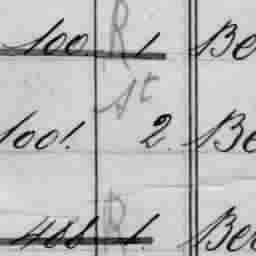 100 R 1. Be
St
1001. 2. Be
R 1. Be